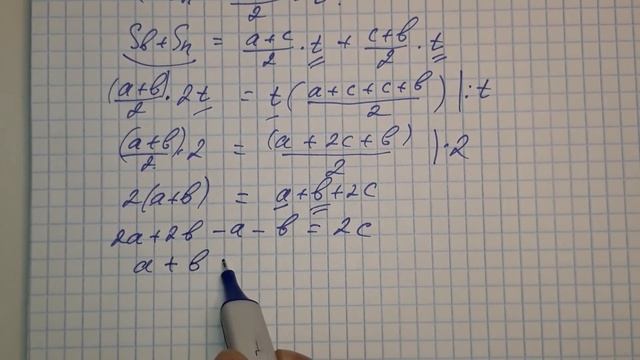 2
Sв + Sн = a+c/2 · t + c+в/2 · t
(a+в)/2 · 2t = t ( a+c+c+в/2 ) | : t
(a+в)/2 · 2 = (a + 2c + в)/2 | · 2
2(a+в) = a+в+2c
2a+2в - a - в = 2c
a + в